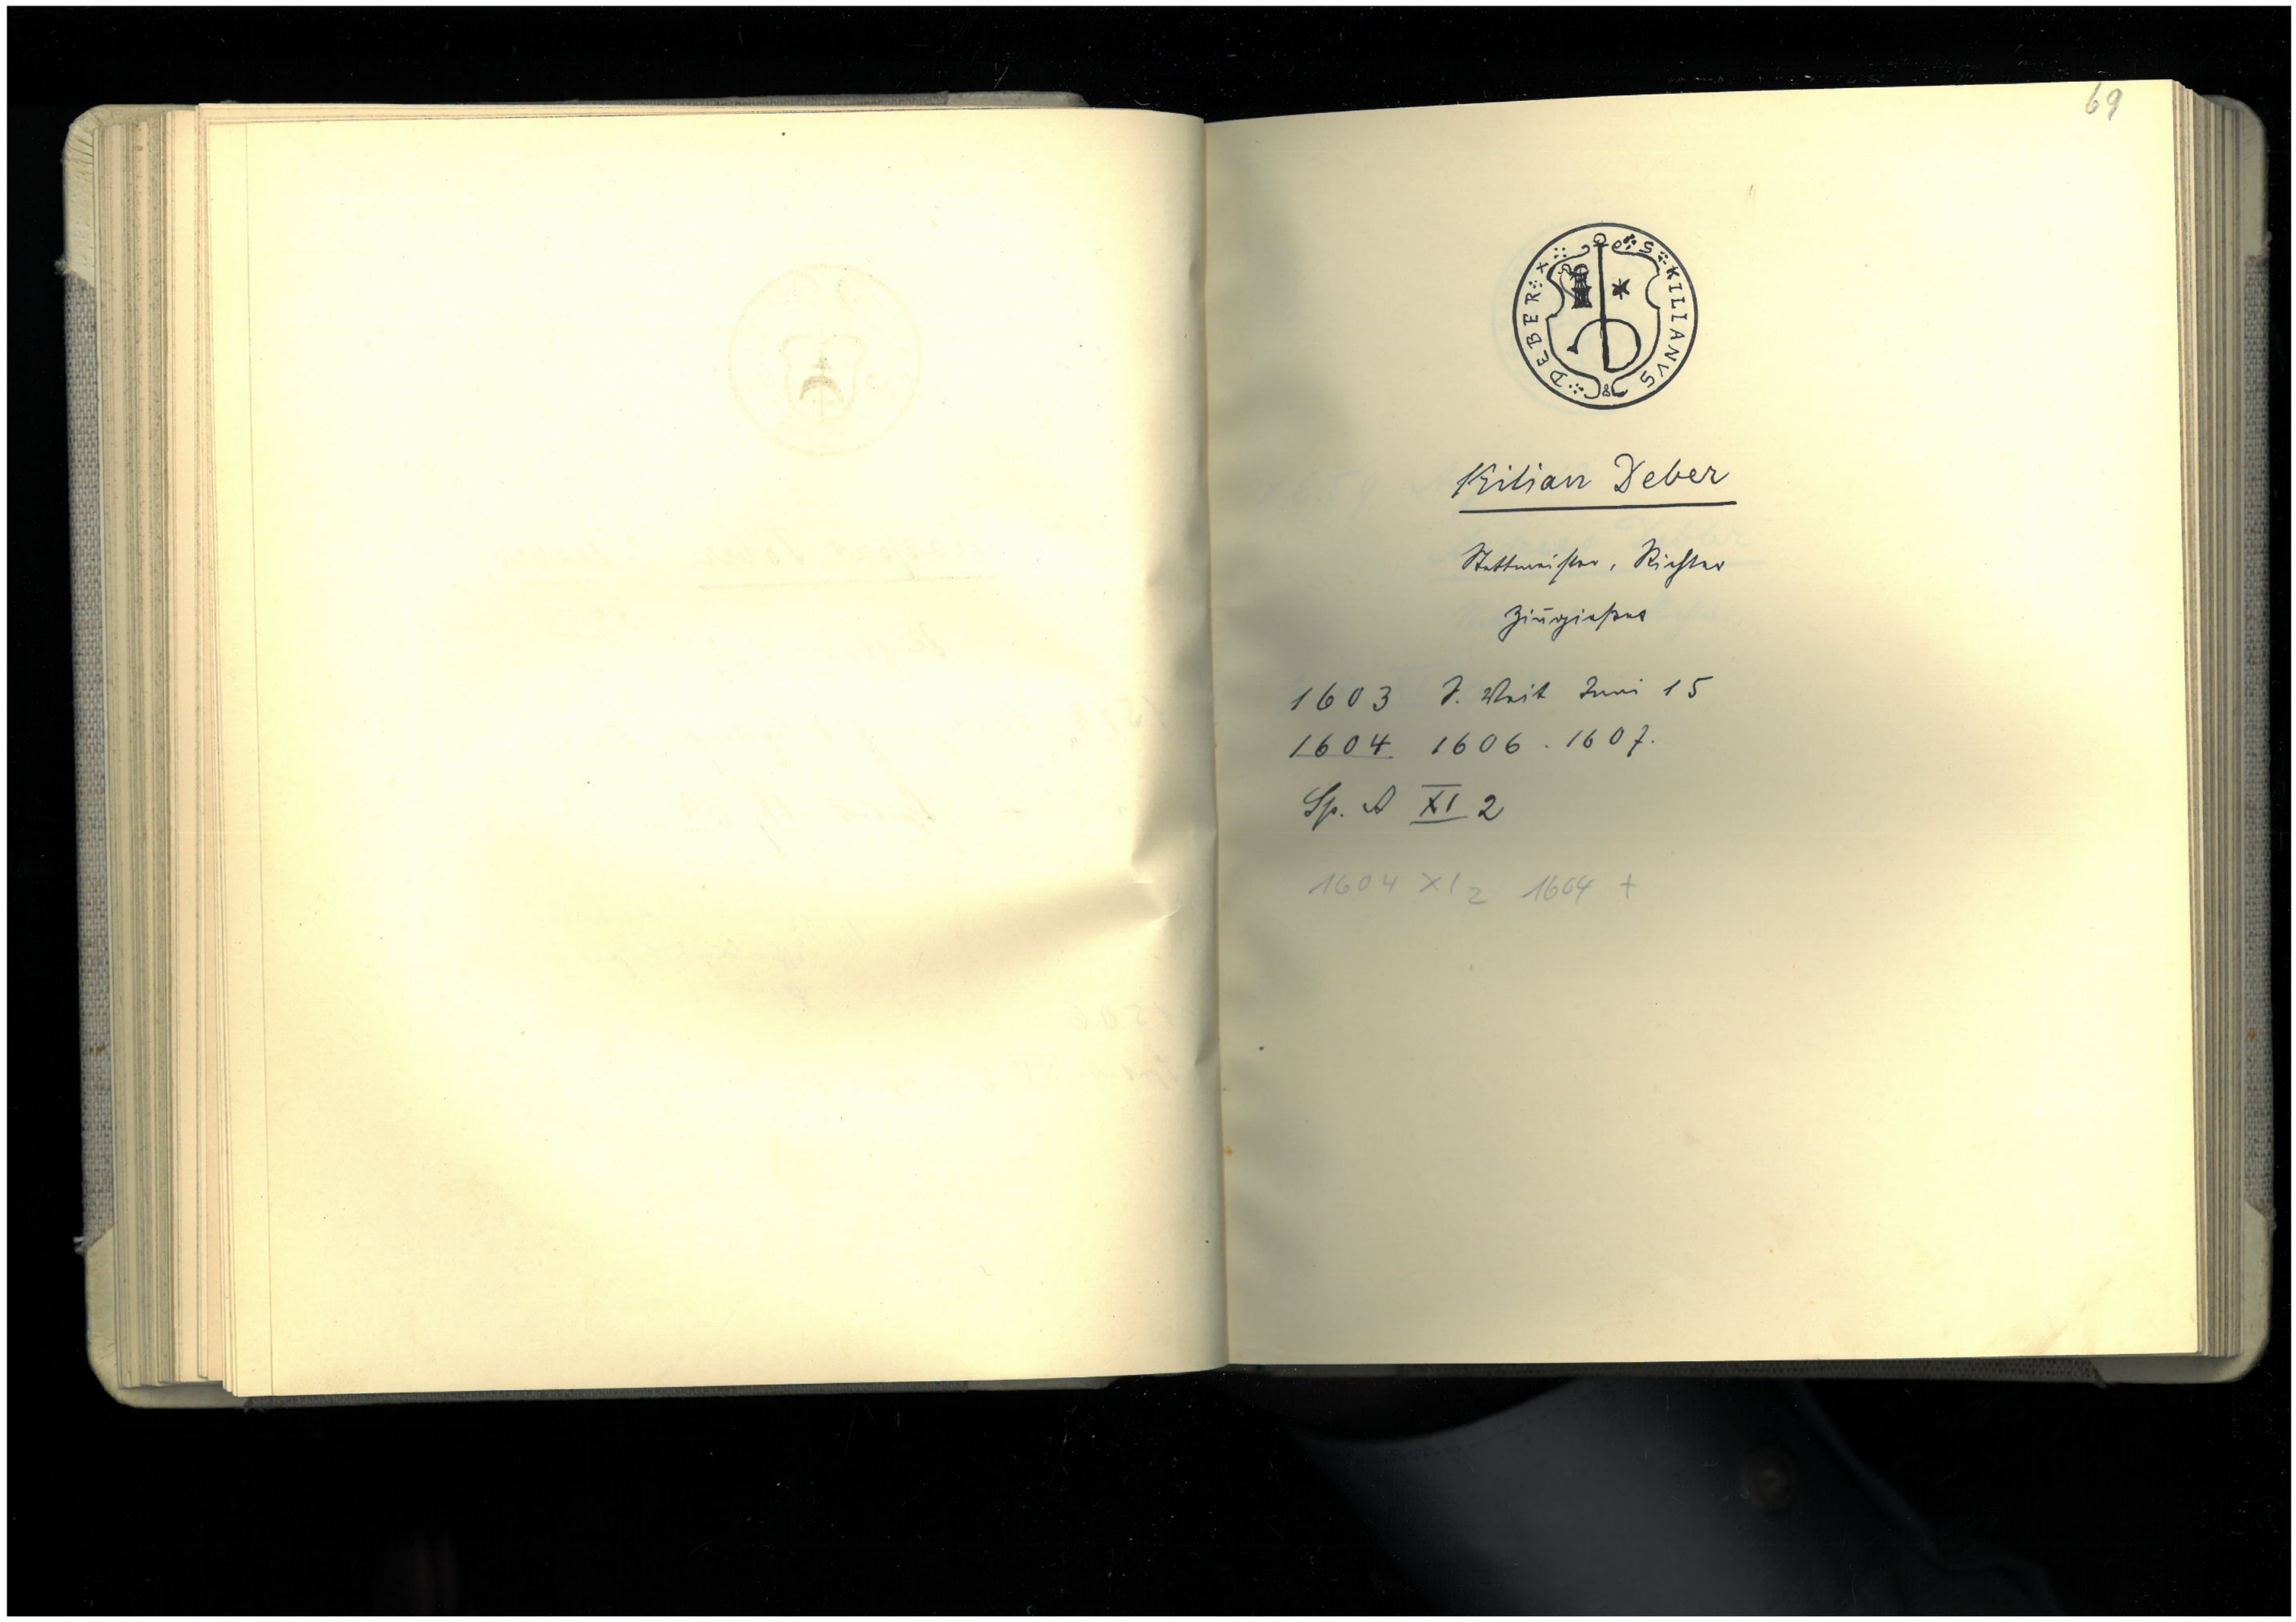 69
S KILIANVS DEBER
Kilian Deber
Stettmeister, Richter
Zinngießer
1603 J. Veit Juni 15
1604 1606. 1607.
Sp. A XI 2
1604 XI 2 1604 +